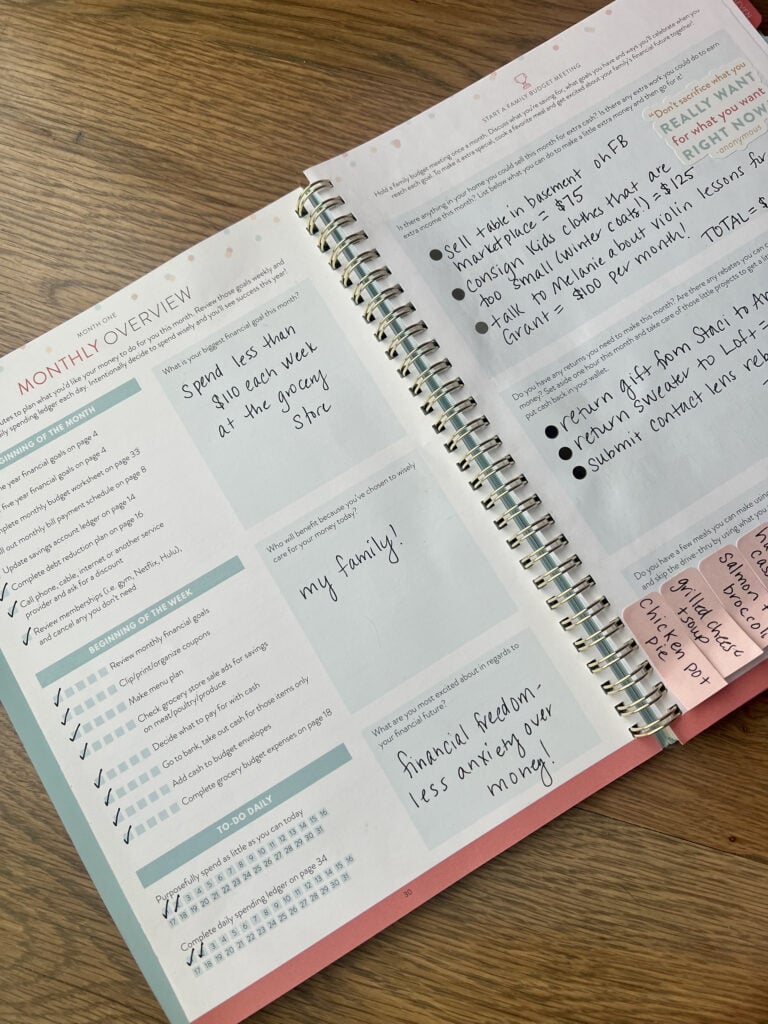 MONTH ONE
MONTHLY OVERVIEW
to plan what you'd like your money to do for you this month. Review those goals weekly and
spending ledger each day. Intentionally decide to spend wisely and you'll see success this year!
OF THE MONTH
year financial goals on page 4
five year financial goals on page 4
monthly budget worksheet on page 33
out monthly bill payment schedule on page 8
Update savings account ledger on page 14
Complete debt reduction plan on page 16
Call phone, cable, internet or another service
provider and ask for a discount
Review memberships (i.e. gym, Netflix, Hulu),
and cancel any you don't need
BEGINNING OF THE WEEK
Review monthly financial goals
Clip/print/organize coupons
Make menu plan
Check grocery store sale ads for savings
on meat/poultry/produce
Decide what to pay for with cash
Go to bank, take out cash for those items only
Add cash to budget envelopes
Complete grocery budget expenses on page 18
TO-DO DAILY
Purposefully spend as little as you can today
3 4 5 6 7 8 9 10 11 12 13 14 15 16
17 18 19 20 21 22 23 24 25 26 27 28 29 30 31
Complete daily spending ledger on page 34
3 4 5 6 7 8 9 10 11 12 13 14 15 16
17 18 19 20 21 22 23 24 25 26 27 28 29 30 31
What is your biggest financial goal this month?
Spend less than
$110 each week
at the grocery
store
Who will benefit because you've chosen to wisely
care for your money today?
my family!
What are you most excited about in regards to
your financial future?
financial freedom-
less anxiety over
money!
30
START A FAMILY BUDGET MEETING
Hold a family budget meeting once a month. Discuss what you're saving for, what goals you have and ways you'll celebrate when you
reach each goal. To make it extra special, cook a favorite meal and get excited about your family's financial future together!
Is there anything in your home you could sell this month for extra cash? Is there any extra work you could do to earn
extra income this month? List below what you can do to make a little extra money and then go for it!
"Don't sacrifice what you
REALLY WANT
for what you want
RIGHT NOW"
-anonymous
Sell table in basement on FB
marketplace = $75
consign kids clothes that are
too small (winter coats!) = $125
talk to Melanie about violin lessons for
Grant = $100 per month!
TOTAL = $
Do you have any returns you need to make this month? Are there any rebates you can
Set aside one hour this month and take care of those little projects to get a
put cash back in your wallet.
return gift from Staci to
return sweater to Loft =
submit contact lens
Do you have a few meals you can make using
and skip the drive-thru by using what you
Chicken pot
pie
grilled cheese
+ soup
salmon +
broccoli